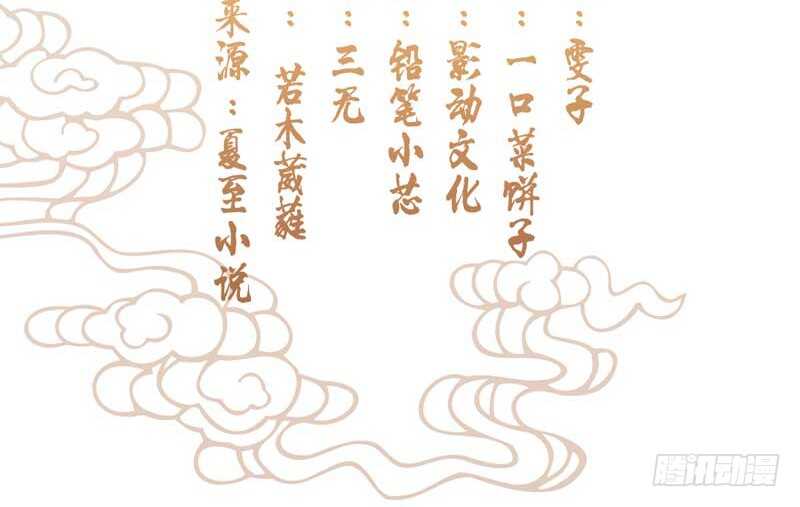 ：雯子
：一口菜饼子
：影动文化
：铅笔小芯
：三无
：若木葳蕤
来源：夏至小说
腾讯动漫